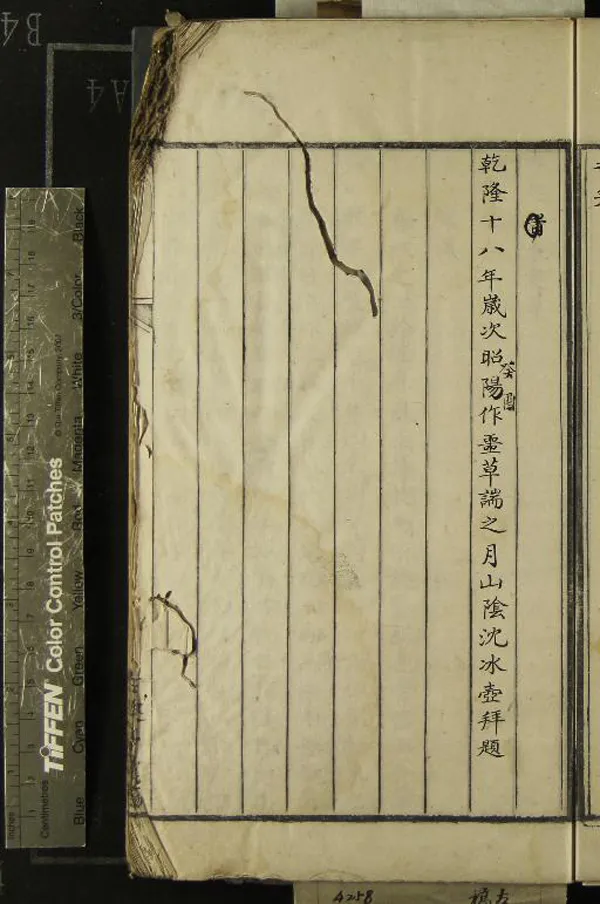 乾隆十八年嵗次昭陽作噩草諯之月山陰沈冰壺拜題
癸酉
B4
A4
TIFFEN Color Control Patches
© The Tiffen Company, 2007
Blue Cyan Green Yellow Red Magenta White 3/Color Black
Inches
Centimetres
4258